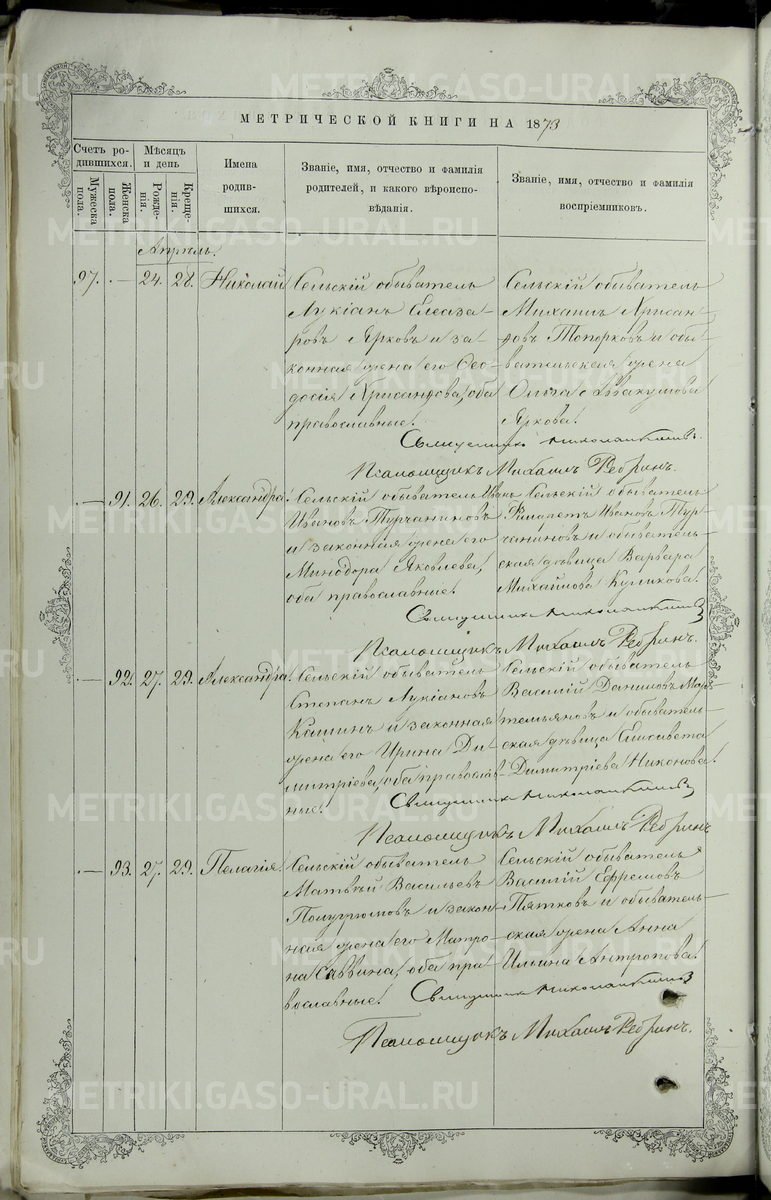 МЕТРИЧЕСКОЙ КНИГИ НА 1873
Счетъ ро-
дившихся.
Мужеска
пола.
Женска
пола.
Мѣсяцъ
и день
Рожде-
нія.
Креще-
нія.
Имена
родив-
шихся.
Званіе, имя, отчество и фамилія
родителей, и какого вѣроиспо-
вѣданія.
Званіе, имя, отчество и фамилія
воспріемниковъ.
Апрѣль.
97. — 24. 28. Николай
Сельскій обыватель
Лукіанъ Елеаза-
ровъ Ярковъ и за-
конная жена его Ѳео-
досія Хрисанфова, оба
православные.
Сельскій обыватель
Михаилъ Хрисан-
фовъ Топорковъ и обы-
вательская жена
Ольга Аввакумова
Яркова.
Священникъ
Псаломщикъ Михаилъ Ребринъ.
— 91. 26. 29. Александра.
Сельскій обыватель Иванъ
Ивановъ Турчаниновъ
и законная жена его
Минодора Яковлева,
оба православные.
Сельскій обыватель
Филаретъ Ивановъ Тур-
чаниновъ и обыватель-
ская дѣвица Варвара
Михайлова Куликова.
Священникъ
Псаломщикъ Михаилъ Ребринъ.
— 92. 27. 29. Александра.
Сельскій обыватель
Степанъ Лукіановъ
Кашинъ и законная
жена его Ирина Ди-
митріева, оба православ-
ные.
Сельскій обыватель
Василій Даниловъ Мар-
темьяновъ и обыватель-
ская дѣвица Елисавета
Димитріева Никонова.
Священникъ
Псаломщикъ Михаилъ Ребринъ
— 93. 27. 29. Пелагія.
Сельскій обыватель
Матвѣй Васильевъ
Полугрюмовъ и закон-
ная жена его Матро-
на Саввина, оба пра-
вославные.
Сельскій обыватель
Василій Ефремовъ
Пятковъ и обыватель-
ская жена Анна
Ильина Антропова.
Священникъ
Псаломщикъ Михаилъ Ребринъ.
METRIKI.GASO-URAL.RU